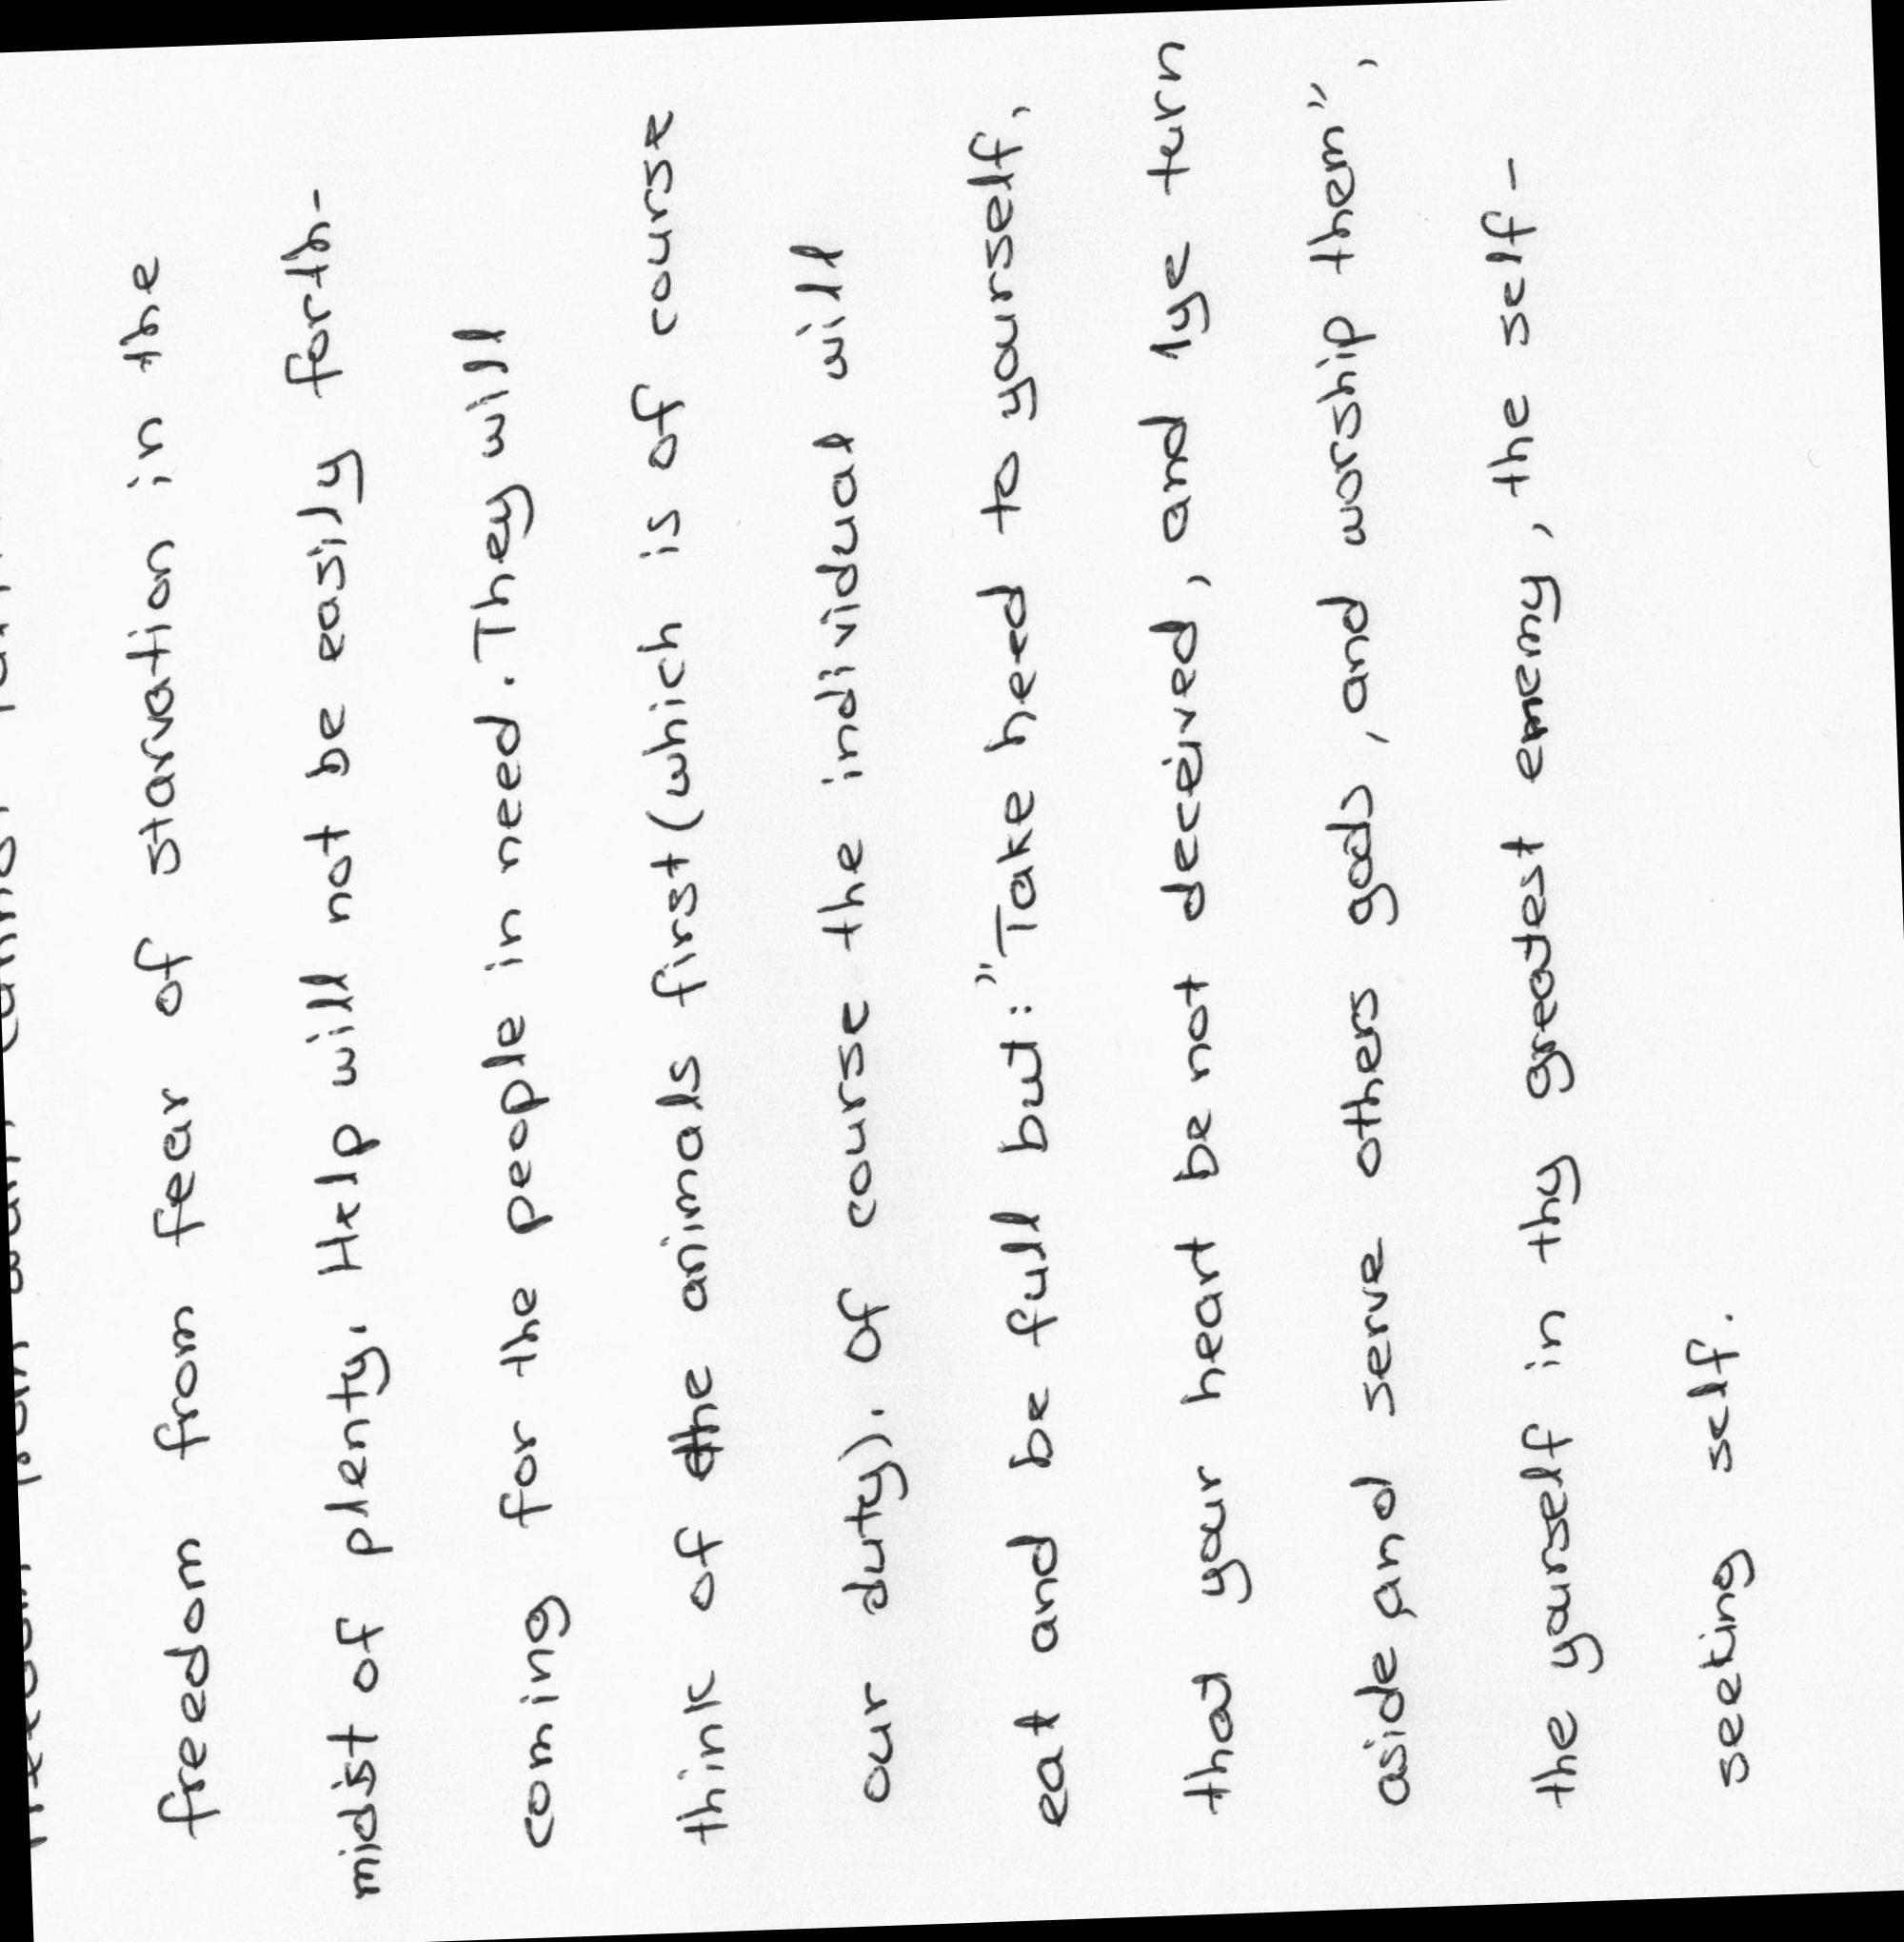 freedom from fear of starvation in the
midst of plenty. Help will not be easily forth-
coming for the people in need. They will
think of the animals first (which is of course
our duty). Of course the individual will
eat and be full but: "Take heed to yourself,
that your heart be not deceived, and 1ye turn
aside and serve others gods, and worship them",
the yourself in thy greatest enemy, the self-
seeking self.